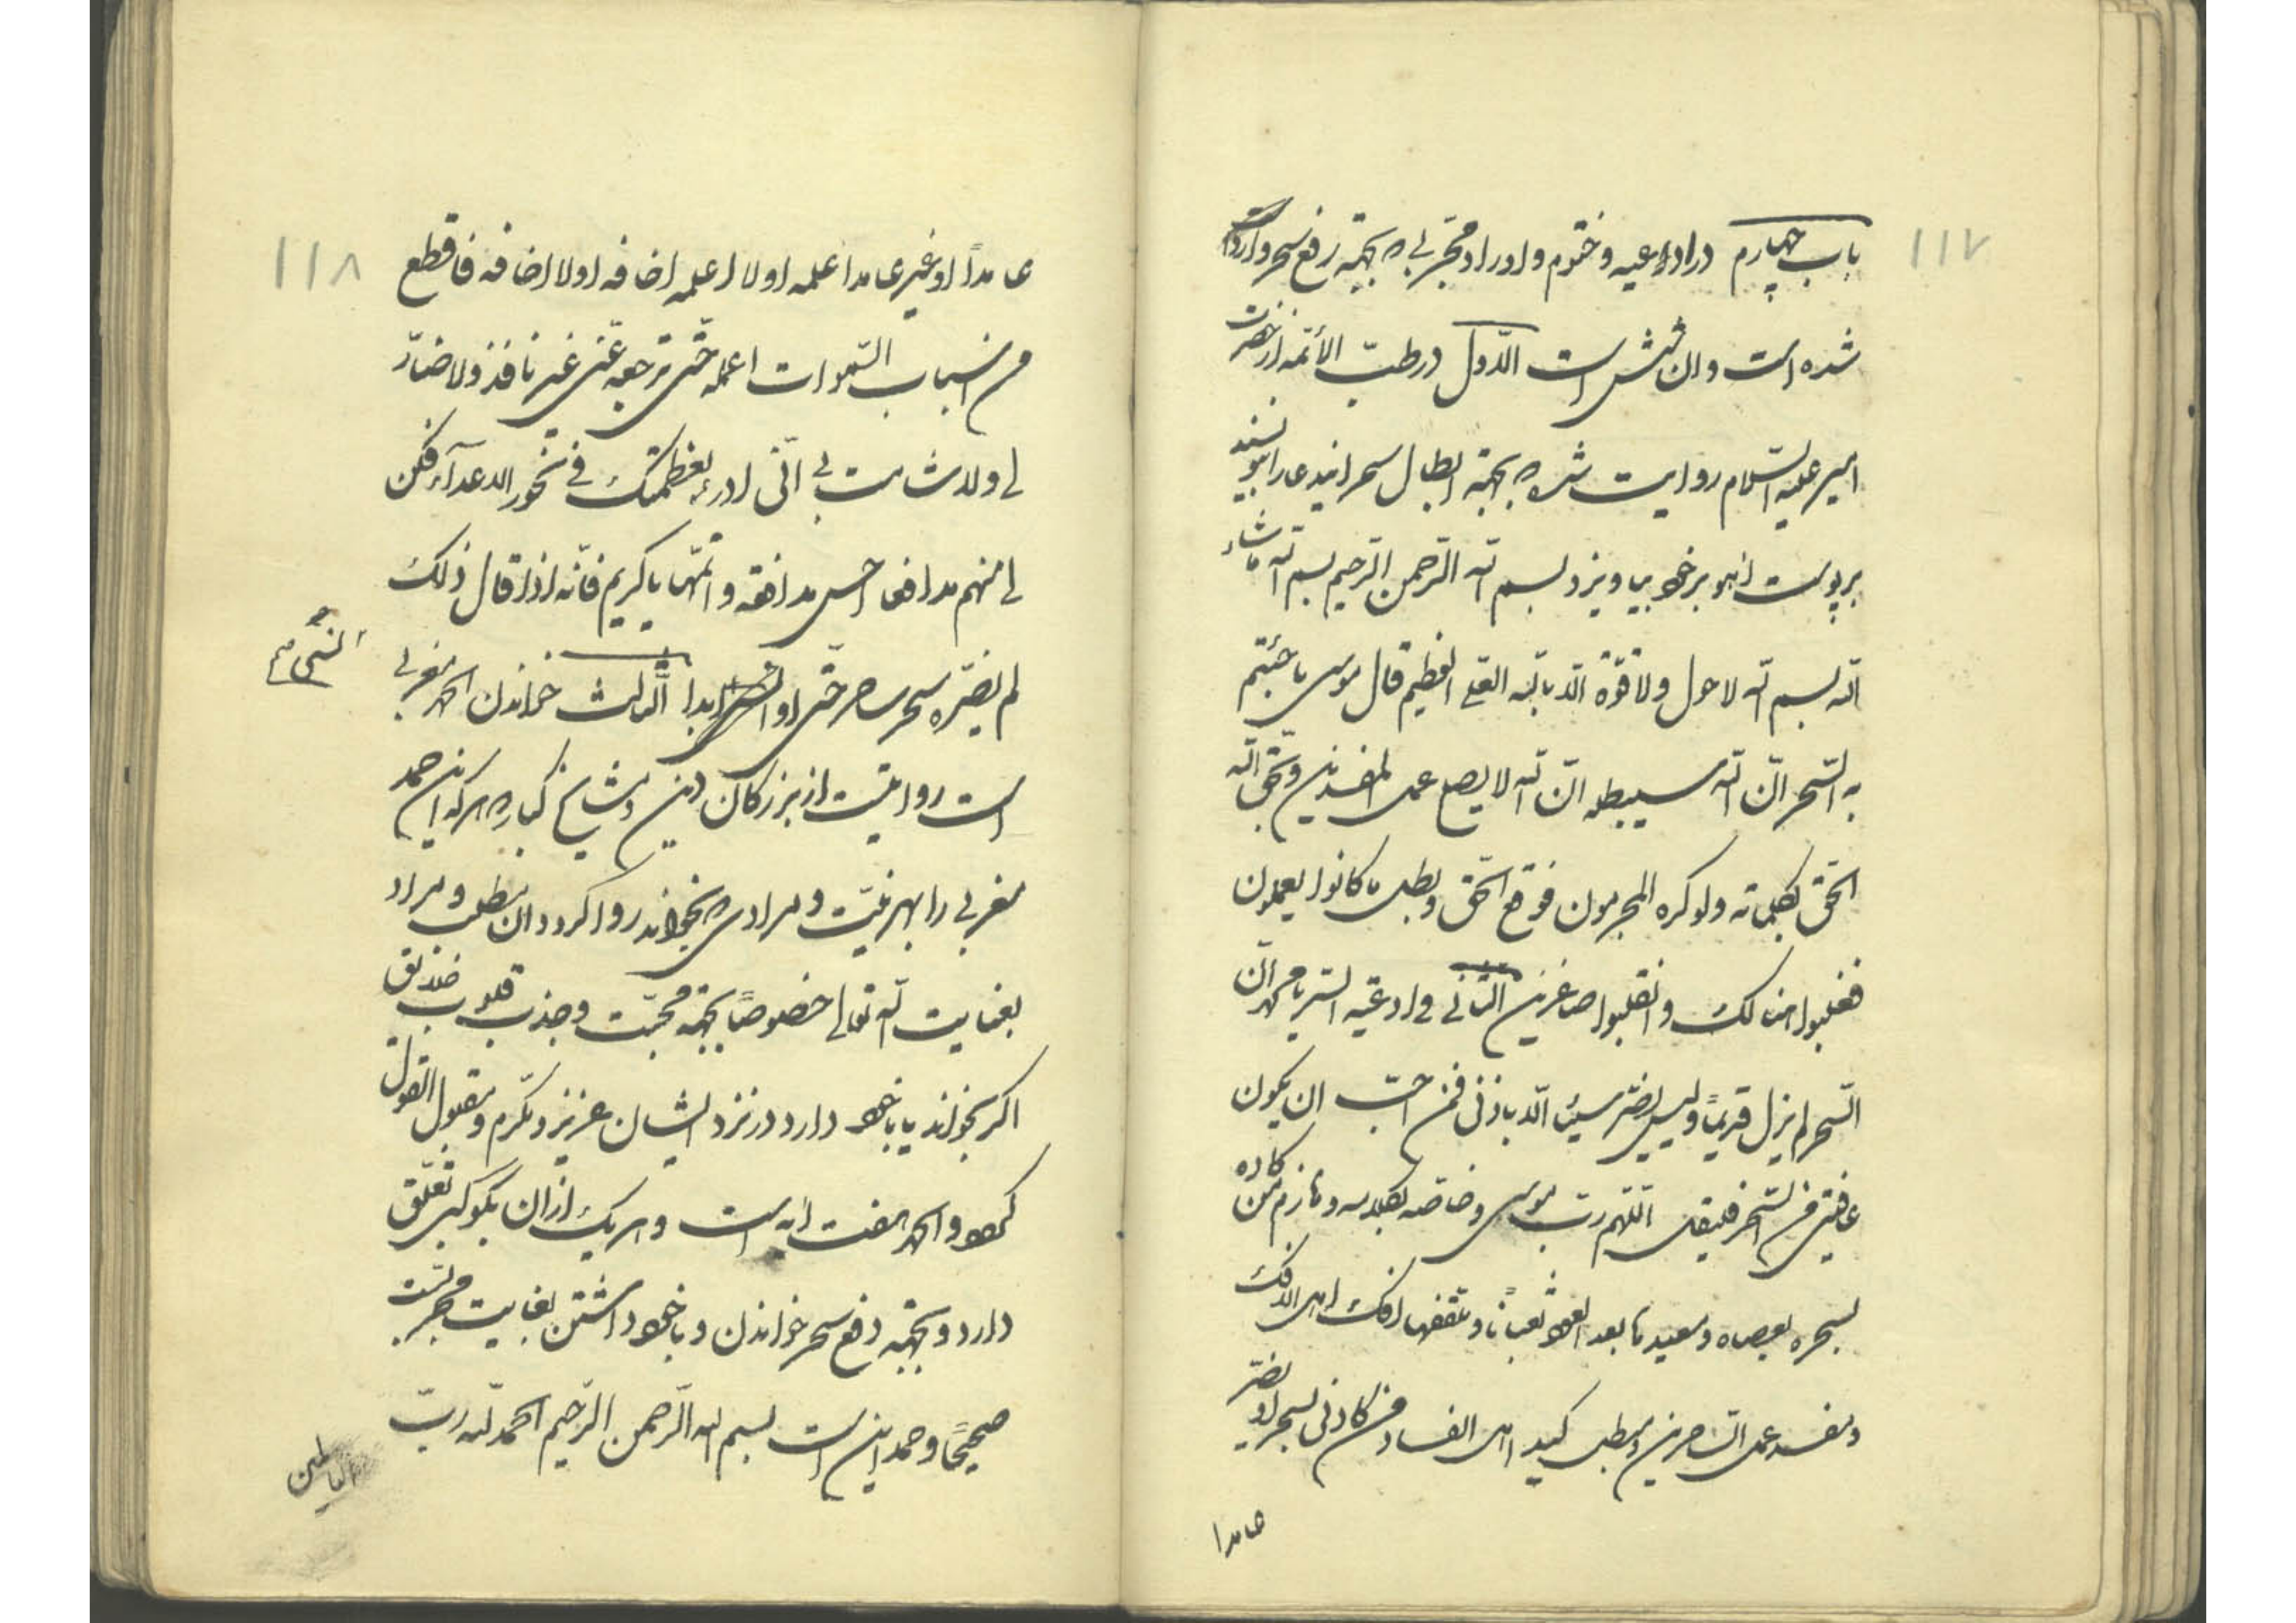 ۱۱۷
باب چهارم در ادعیه و ختوم و اوراد مجربی که بجهة رفع سحر وارد
شده است و ان شش است الاول در طب الأئمه از حضرت
امیر علیه السلام روایت شده که بجهة ابطال سحر ایندعا را بنویسند
بر پوست اهو بر خود بیاویزد بسم الله الرحمن الرحیم بسم الله ما شاء
الله بسم الله لا حول ولا قوة الا بالله العلی العظیم قال موسی ما جئتم
به السحر ان الله سیبطله ان الله لا یصلح عمل المفسدین و یحق الله
الحق بکلماته ولو کره المجرمون فوقع الحق و بطل ما کانوا یعملون
فغلبوا هنالک وانقلبوا صاغرین الثانی فی ادعیه السر یا محمد ان
السحر لم یزل قدیماً ولیس یضر شیئا الا باذنی فمن احب ان یکون
عافیتی من السحر فلیقل اللهم رب موسی و خاصه بکلامه و هازم من کاده
بسحره بعصاه و معیدها بعد العود ثعباناً و ملقفها افک اهل الافک
و مفسد عمل الساحرین و مبطل کید اهل الفساد من کادنی بسحر او بضر
عامدا
۱۱۸
عامداً او غیر عامد اعلمه او لا اعلمه اخافه او لا اخافه فاقطع
من اسباب السموات اعمله حتی ترجعه عنی غیر نافذ ولا ضار
لی ولا شامت بی انی ادرء بعظمتک فی نحور الاعداء فکن
لی منهم مدافعا احسن مدافعه و اتمها یا کریم فانه اذا قال ذلک
لم یضره سحر ساحر جنی او انسی ابدا الثالث خواندن الحمد مغربی
انسی صح
است روایتست از بزرکان دین و مشایخ کبار که هر که این حمد
مغربی را بهر نیت و مرادی که بخواند روا کردد ان مطلب و مراد
بعنایت الله تعالی خصوصاً بجهة محبت و جذب قلوب خلایق
اکر بخواند یا با خود دارد در نزد ایشان عزیز و مکرم و مقبول القول
کردد و الحمد هفت ایه است و هر یک از ان بکوکبی تعلق
دارد و بجهة دفع سحر خواندن و با خود داشتن بغایت مجربست
صحیحاً و حمد این است بسم الله الرحمن الرحیم الحمد لله رب
العالمین